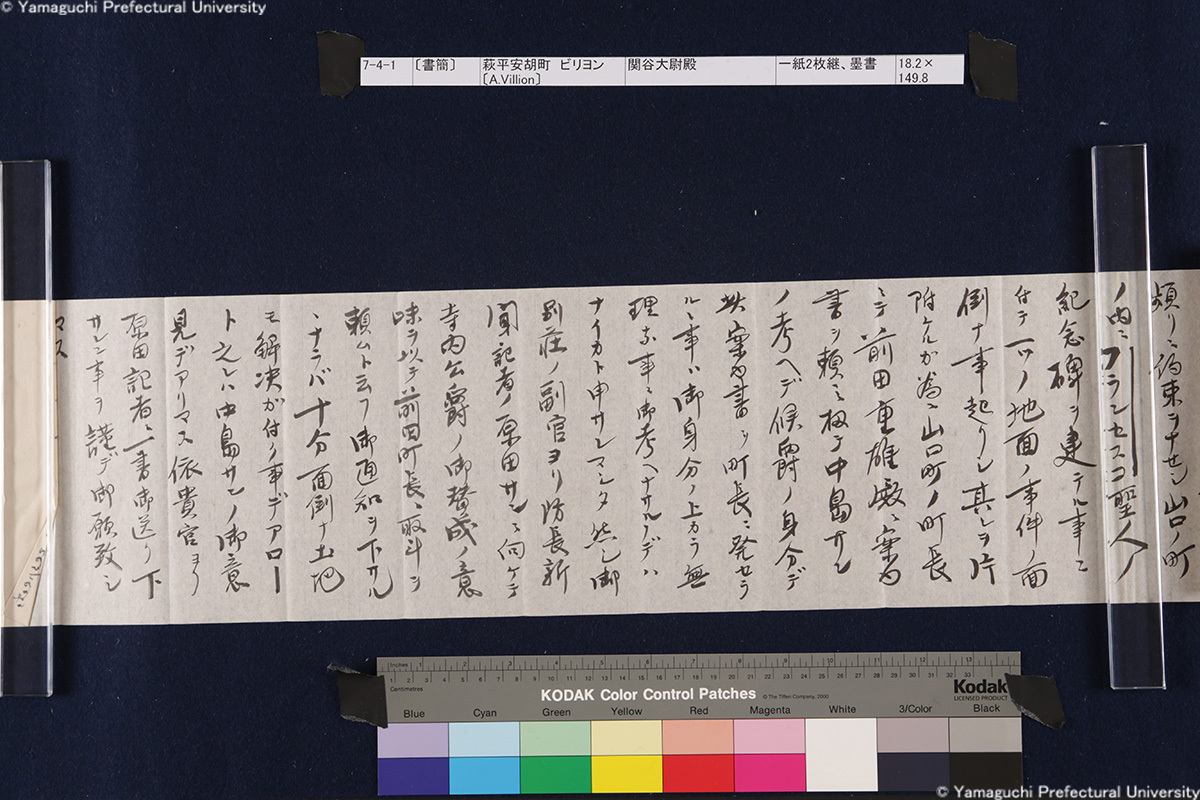 © Yamaguchi Prefectural University
7-4-1 〔書簡〕 萩平安胡町 ビリヨン 〔A.Villion〕 関谷大尉殿 一紙2枚継、墨書 18.2×149.8
頻リニ約束ヲナセシ山口ノ町
ノ内ニフランセスコ聖人ノ
紀念碑ヲ建テル事ニ
付テ一ツノ地面ノ事件ノ面
倒ナ事起リシ其レヲ片
附ケルガ為ニ山口町ノ町長
ニテ前田重雄殿ニ案内
書ヲ頼ミ扨テ中島サン
ノ考ヘデ候爵ノ身分デ
其案内書ヲ町長ニ発セラ
ルヽ事ハ御身分ノ上カラ無
理な事ニ御考ヘナサルノデハ
ナイカト申サレマシタ然シ御
別荘ノ副官ヨリ防長新
聞記者ノ原田サンニ向ケテ
寺内公爵ノ御賛成ノ意
味ヲ以テ前田町長ニ取斗ヲ
頼ムト云フ御通知ヲ下サル
ヽナラバ十分面倒ナ土地
モ解決ガ付ク事デアロー
ト之レハ中島サンノ御意
見デアリマス依貴官ヨリ
原田記者ニ一書御送リ下
サレン事ヲ謹デ御願致シ
マス
Inches 1 2 3 4 5 6 7 8 9 10 11 12 13
Centimetres
KODAK Color Control Patches © The Tiffen Company, 2000 Kodak LICENSED PRODUCT
Blue Cyan Green Yellow Red Magenta White 3/Color Black
© Yamaguchi Prefectural University